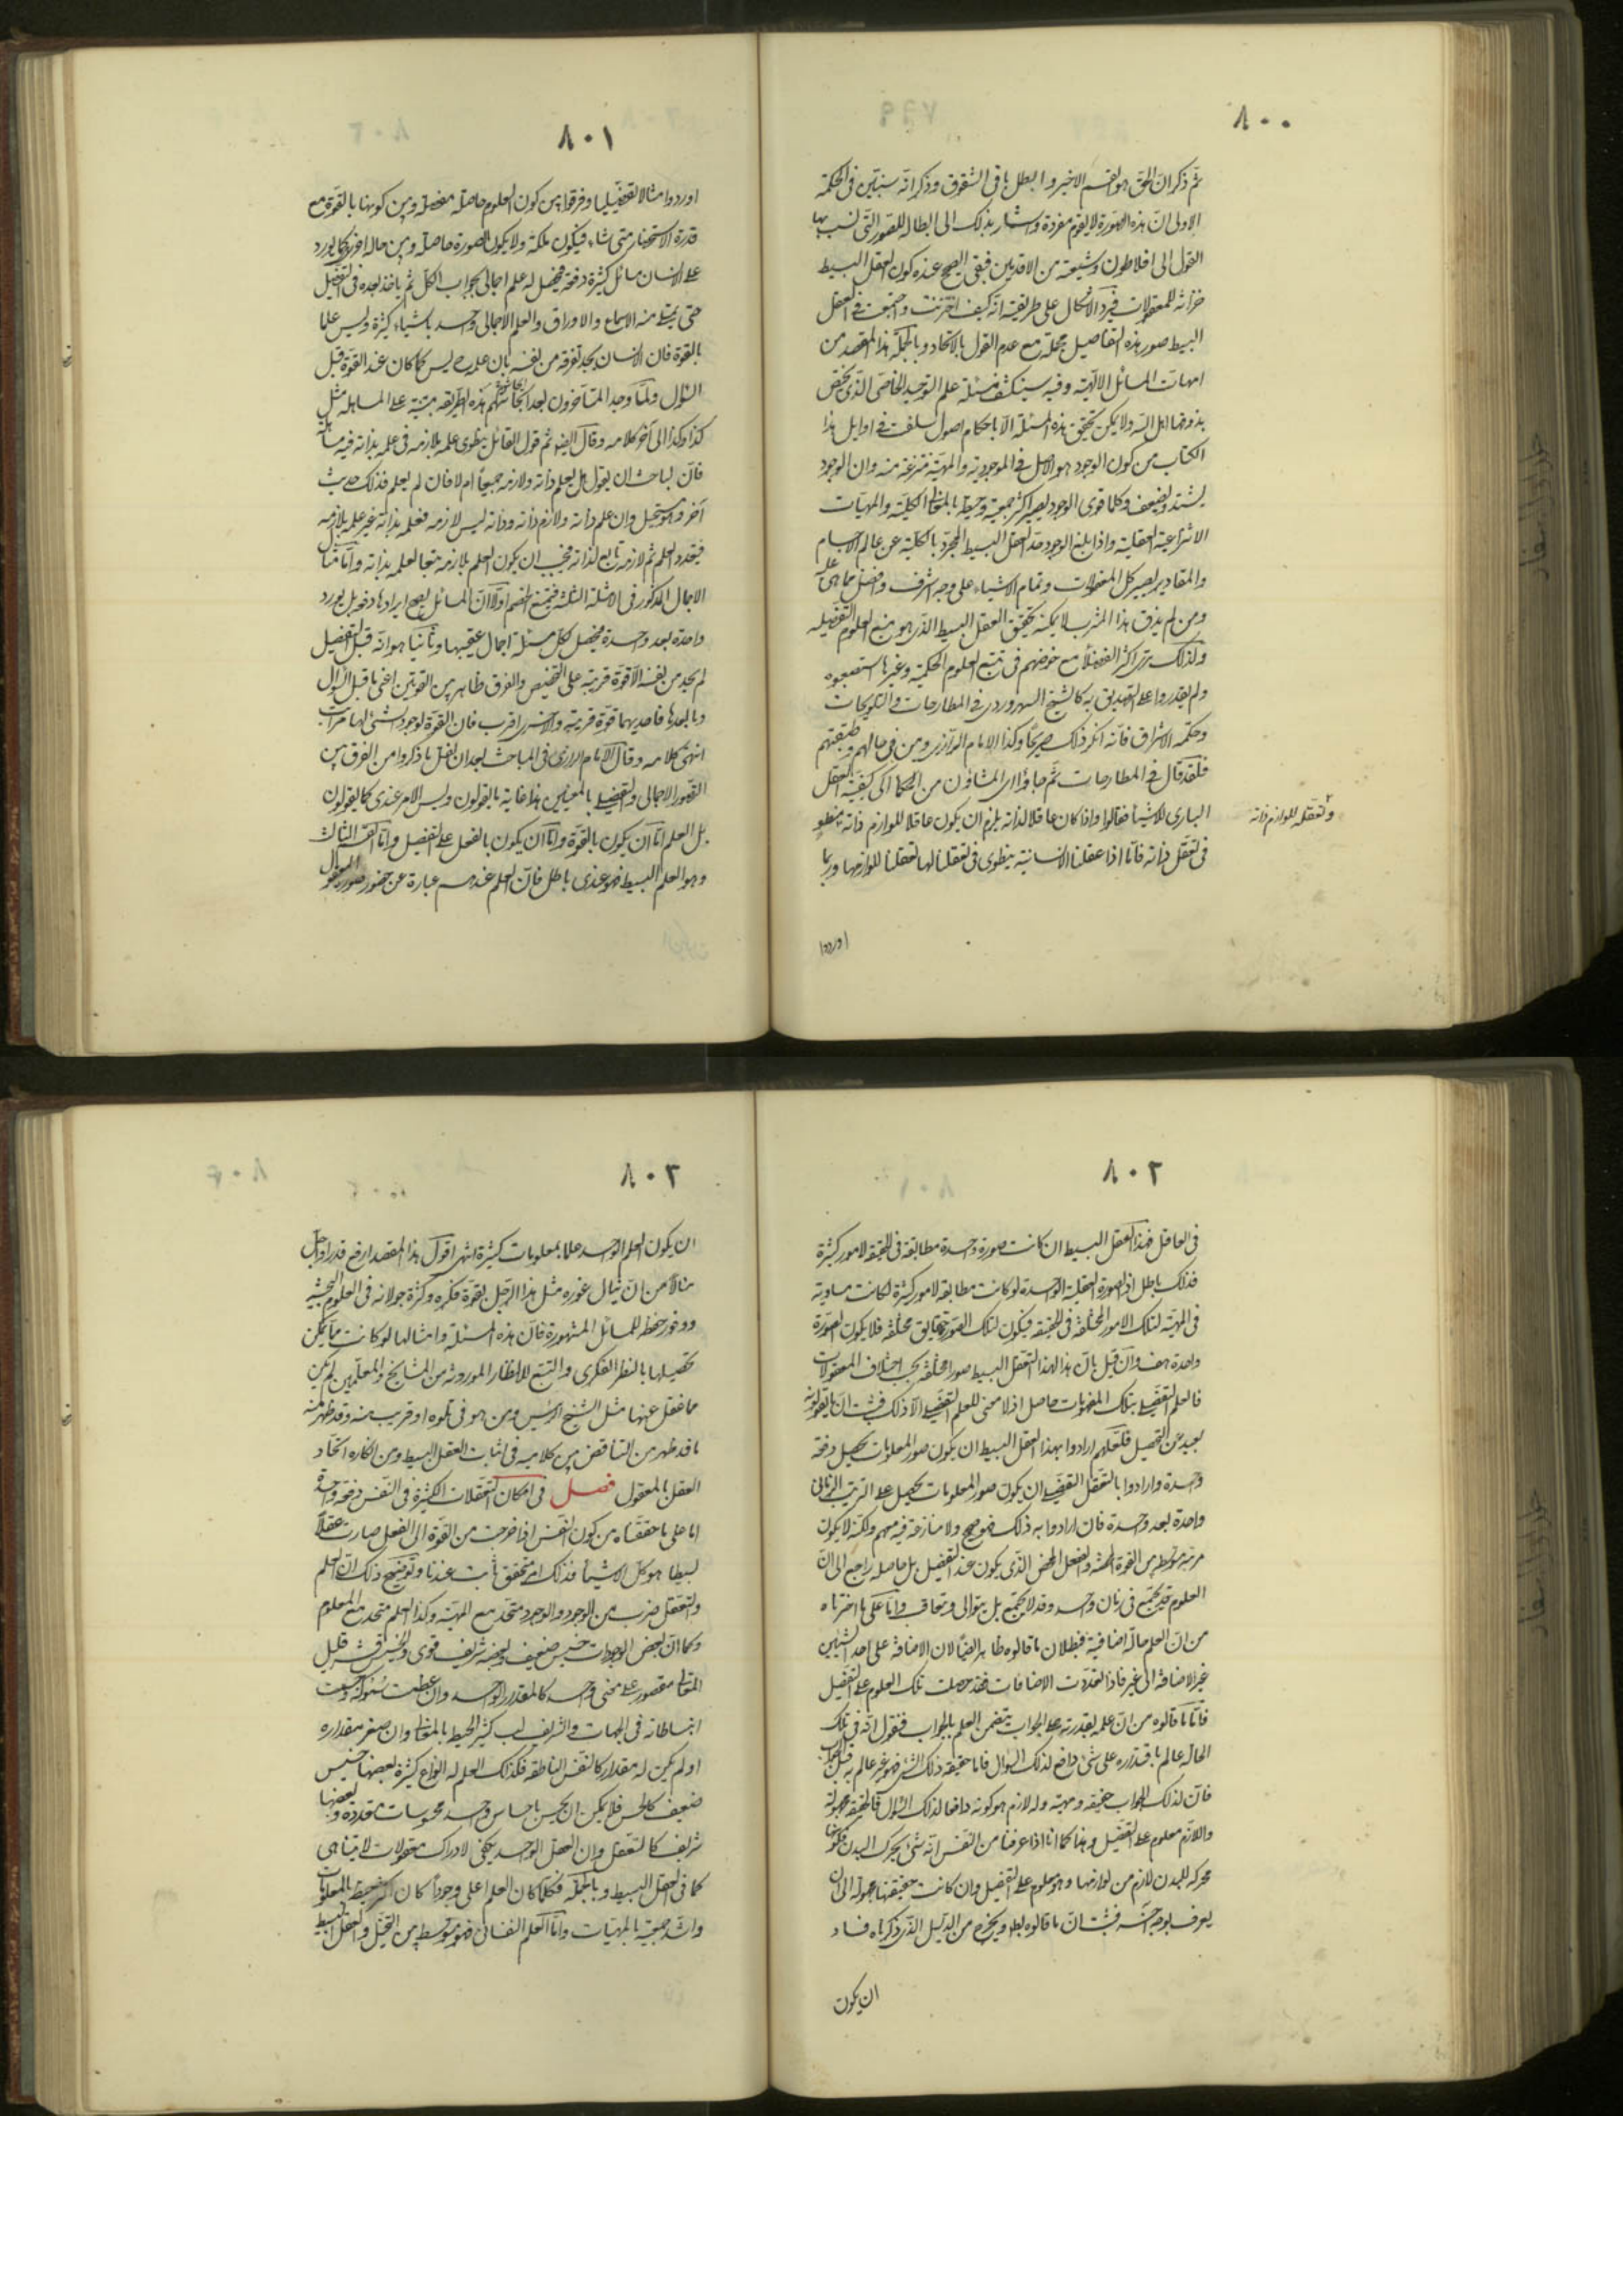 ٨٠٠
ثم ذكر ان الحق هو القسم الاخير وابطل باقى الشقوق وذكر انه سنبين فى الحكمة
الاولى ان هذه الصورة لا يقوم مفردة واشار بذلك الى ابطاله للصور التى نسب بها
القول الى افلاطون وشيعته من الاقدمين فبقى الصحيح عنده كون العقل البسيط
خزانة للمعقولات فيرد الاشكال على طريقته انه كيف اختزنت واجتمعت فى العقل
البسيط صور هذه التفاصيل مجملة مع عدم القول بالاتحاد وبالجملة هذا المقصد من
امهات المسائل الالهية وفيه سينكشف مسئلة علم التوحيد الخاصى الذى يختص
بذوقها اهل الله ولا يمكن تحقيق هذه المسئلة الا باحكام اصول سلفت فى اوايل هذا
الكتاب من كون الوجود هو الاصل فى الموجودية والمهية منتزعة منه وان الوجود
يشتد ويضعف وكلما قوى الوجود يصير اكثر جمعية وحيطة بالمعانى الكلية والمهيات
الانتزاعية العقلية واذا بلغ الوجود حد العقل البسيط المجرد بالكلية عن عالم الاجسام
والمقادير يصير كل المعقولات وتمام الاشياء على وجه اشرف وافضل مما هى عليه
ومن لم يذق هذا المشرب لا يمكنه تحقيق العقل البسيط الذى هو منبع العلوم التفصيلية
ولذلك ترى اكثر الفضلاء مع خوضهم فى تتبع العلوم الحكمية وغيرها استصعبوه
ولم يقدروا على التصديق به كالشيخ السهروردى فى المطارحات والتلويحات
وحكمة الاشراق فانه انكر ذلك صريحا وكذا الامام الرازى ومن فى حالهم وطبقتهم
فلقد قال فى المطارحات ثم جاؤا اى المشاؤن من الحكماء الى كيفية تعقل
البارى للاشياء فقالوا واذا كان عاقلا لذاته يلزم ان يكون عاقلا للوازم ذاته منطو
وتعقله للوازم ذاته
فى تعقل ذاته فانا اذا عقلنا الانسانية ينطوى فى تعقلنا لها تعقلنا للوازمها وربما
اوردوا
٨٠١
اوردوا مثالا تفصيليا وفرقوا بين كون العلوم حاصلة مفصلة وبين كونها بالقوة مع
قدرة الاستحضار متى شاء فيكون ملكة ولا يكون الصورة حاصلة وبين حالة اخرى كما يورد
على الانسان مسائل كثيرة دفعة فيحصل له علم اجمالى بجواب الكل ثم ياخذ بعده فى التفصيل
حتى يمتلى منه الاسماع والاوراق والعلم الاجمالى واحد باشياء كثيرة وليس علما
بالقوة فان الانسان يجد تفرقة من نفسه بان علمه ليس كما كان عند القوة قبل
السؤال ولما وجد المتاخرون بعد ابحاثهم هذه الطريقة مبنية على المساهلة مثل
كذا وكذا الى آخر كلامه وقال ايضا ثم قول القائل ينطوى علمه بلازمه فى علمه بذاته فيه مساهلة
فان لباحث ان يقول هل يعلم ذاته ولازمه جميعا ام لا فان لم يعلم فذلك حديث
آخر وهو مستحيل وان علم ذاته ولازم ذاته وذاته ليس لازمه فعلمه بذاته غير علمه بلازمه
فيتعدد العلم ثم لازمه تابع لذاته فيجب ان يكون العلم بلازمه متعا لعلمه بذاته واما مثال
الاجمال المذكور فى الامثلة الثلثة فيمنع الخصم اولا ان المسائل يصح ايرادها دفعة بل يورد
واحدة بعد واحدة فيحصل لكل مسئلة اجمال عقيبها وثانيا هو انه قبل التفصيل
لم يجد من نفسه الا قوة قريبة على التفصيل والفرق ظاهر بين القوتين اعنى ما قبل السؤال
وما بعدها فاحديهما قوة قريبة والاخرى اقرب فان القوة لوجود الشئ لها مراتب
انتهى كلامه وقال الامام الرازى فى المباحث بعد ان نقل ما ذكروا من الفرق بين
التصور الاجمالى والتفصيلى بالمعنيين هذا غاية ما يقولون وليس الامر عندى كما يقولون
بل العلم اما ان يكون بالقوة واما ان يكون بالفعل على التفصيل واما القسم الثالث
وهو العلم البسيط فهو عندى باطل فان العلم عندهم عبارة عن حضور صورة المعقول
٨٠٢
فى العاقل فهذا العقل البسيط ان كانت صورة واحدة مطابقة فى الحقيقة لامور كثيرة
فذلك باطل اذ الصورة العقلية الواحدة لو كانت مطابقة لامور كثيرة لكانت مساوية
فى المهية لتلك الامور المختلفة فى الحقيقة فيكون لتلك الصورة حقايق مختلفة فلا يكون الصورة
واحدة هف وان قيل بان هذا لهذا التعقل البسيط صورا مختلفة بحسب اختلاف المعقولات
فالعلم التفصيلى بتلك المعلومات حاصل اذ لا معنى للعلم التفصيلى الا ذلك فثبت ان ما يقولونه
بعيد عن التحصيل فلعلهم ارادوا بهذا العقل البسيط ان يكون صور المعلومات يحصل دفعة
واحدة وارادوا بالتعقل التفصيلى ان يكون صور المعلومات يحصل على الترتيب الزمانى
واحدة بعد واحدة فان ارادوا به ذلك فهو صحيح ولا منازعة فيه معهم ولكنه لا يكون
مرتبة متوسطة بين القوة المحضة والفعل المحض الذى يكون عند التفصيل بل حاصله راجع الى ان
العلوم قد يجتمع فى زمان واحد وقد لا يجتمع بل يتوالى ويتعاقب واما على ما اخترناه
من ان العلم حالة اضافية فبطلان ما قالوه ظاهر ايضا لان الاضافة على احد الشيئين
غير الاضافة الى غيره فاذا تعددت الاضافات فقد حصلت تلك العلوم على التفصيل
فاما ما قالوه من ان علمه بقدرته على الجواب يتضمن العلم بالجواب فنقول انه فى تلك
الحالة عالم باقتداره على شئ دافع لذلك السؤال فاما حقيقة ذلك الشئ فهو غير عالم به قبل الجواب
فان لذلك الجواب حقيقة ومهية وله لازم هو كونه دافعا لذلك السؤال فالحقيقة مجهولة
واللازم معلوم على التفصيل وهذا كما انا اذا عرفنا من النفس انه شئ يحرك البدن فكونها
محركة للبدن لازم من لوازمها وهو معلوم على التفصيل وان كانت حقيقتها مجهولة الى ان
يعرف بوجه آخر فثبت ان ما قالوه بطل ويخرج من الدليل الذى ذكرناه فساد
ان يكون
٨٠٣
ان يكون العلم الواحد علما بمعلومات كثيرة انتهى اقول هذا المقصد ارفع قدرا واجل
منالا من ان ينال غوره مثل هذا الرجل بقوة فكره وكثرة جولانه فى العلوم البحثية
ووفور حفظه للمسائل المشهورة فان هذه المسئلة وامثالها لو كانت مما يمكن
تحصيلها بالنظر الفكرى والتتبع للانظار الموروثة من المشايخ والمعلمين لم يكن
مما غفل عنها مثل الشيخ الرئيس ومن هو فى تلوه او قريب منه وقد ظهر منه
ما قد ظهر من التناقض بين كلاميه فى اثبات العقل البسيط ومن انكاره اتحاد
العقل بالمعقول فصل فى امكان التعقلات الكثيرة فى النفس دفعة واحدة
اما على ما حققناه من كون النفس اذا خرجت من القوة الى الفعل صارت عقلا
بسيطا هو كل الاشياء فذلك امر محقق ثابت عندنا وتوضيح ذلك ان العلم
والتعقل ضرب من الوجود والوجود متحد مع المهية وكذا العلم متحد مع المعلوم
وكما ان بعض الوجودات خسيس ضعيف وبعضه شريف قوى والخسيس قشره قليل
المعانى مقصور على معنى واحد كالمقدار الواحد وان عظمت سموكه وسعت
انبساطاته فى الجهات والشريف لبه كثير الحيطة بالمعانى وان صغر مقداره
او لم يكن له مقدار كالنفس الناطقة فكذلك العلم له انواع كثيرة بعضها خسيس
ضعيف كالحس فلا يمكن ان يحس باحساس واحد محسوسات متعددة وبعضها
شريف كالتعقل وان العقل الواحد يكفى لادراك معقولات لا يتناهى
كما فى العقل البسيط وبالجملة فكلما كان العلم اعلى وجودا كان اكثر حيطة بالمعلومات
واشد جمعية بالمهيات واما العلم النفسانى فهو متوسط بين التخيل والعقل البسيط